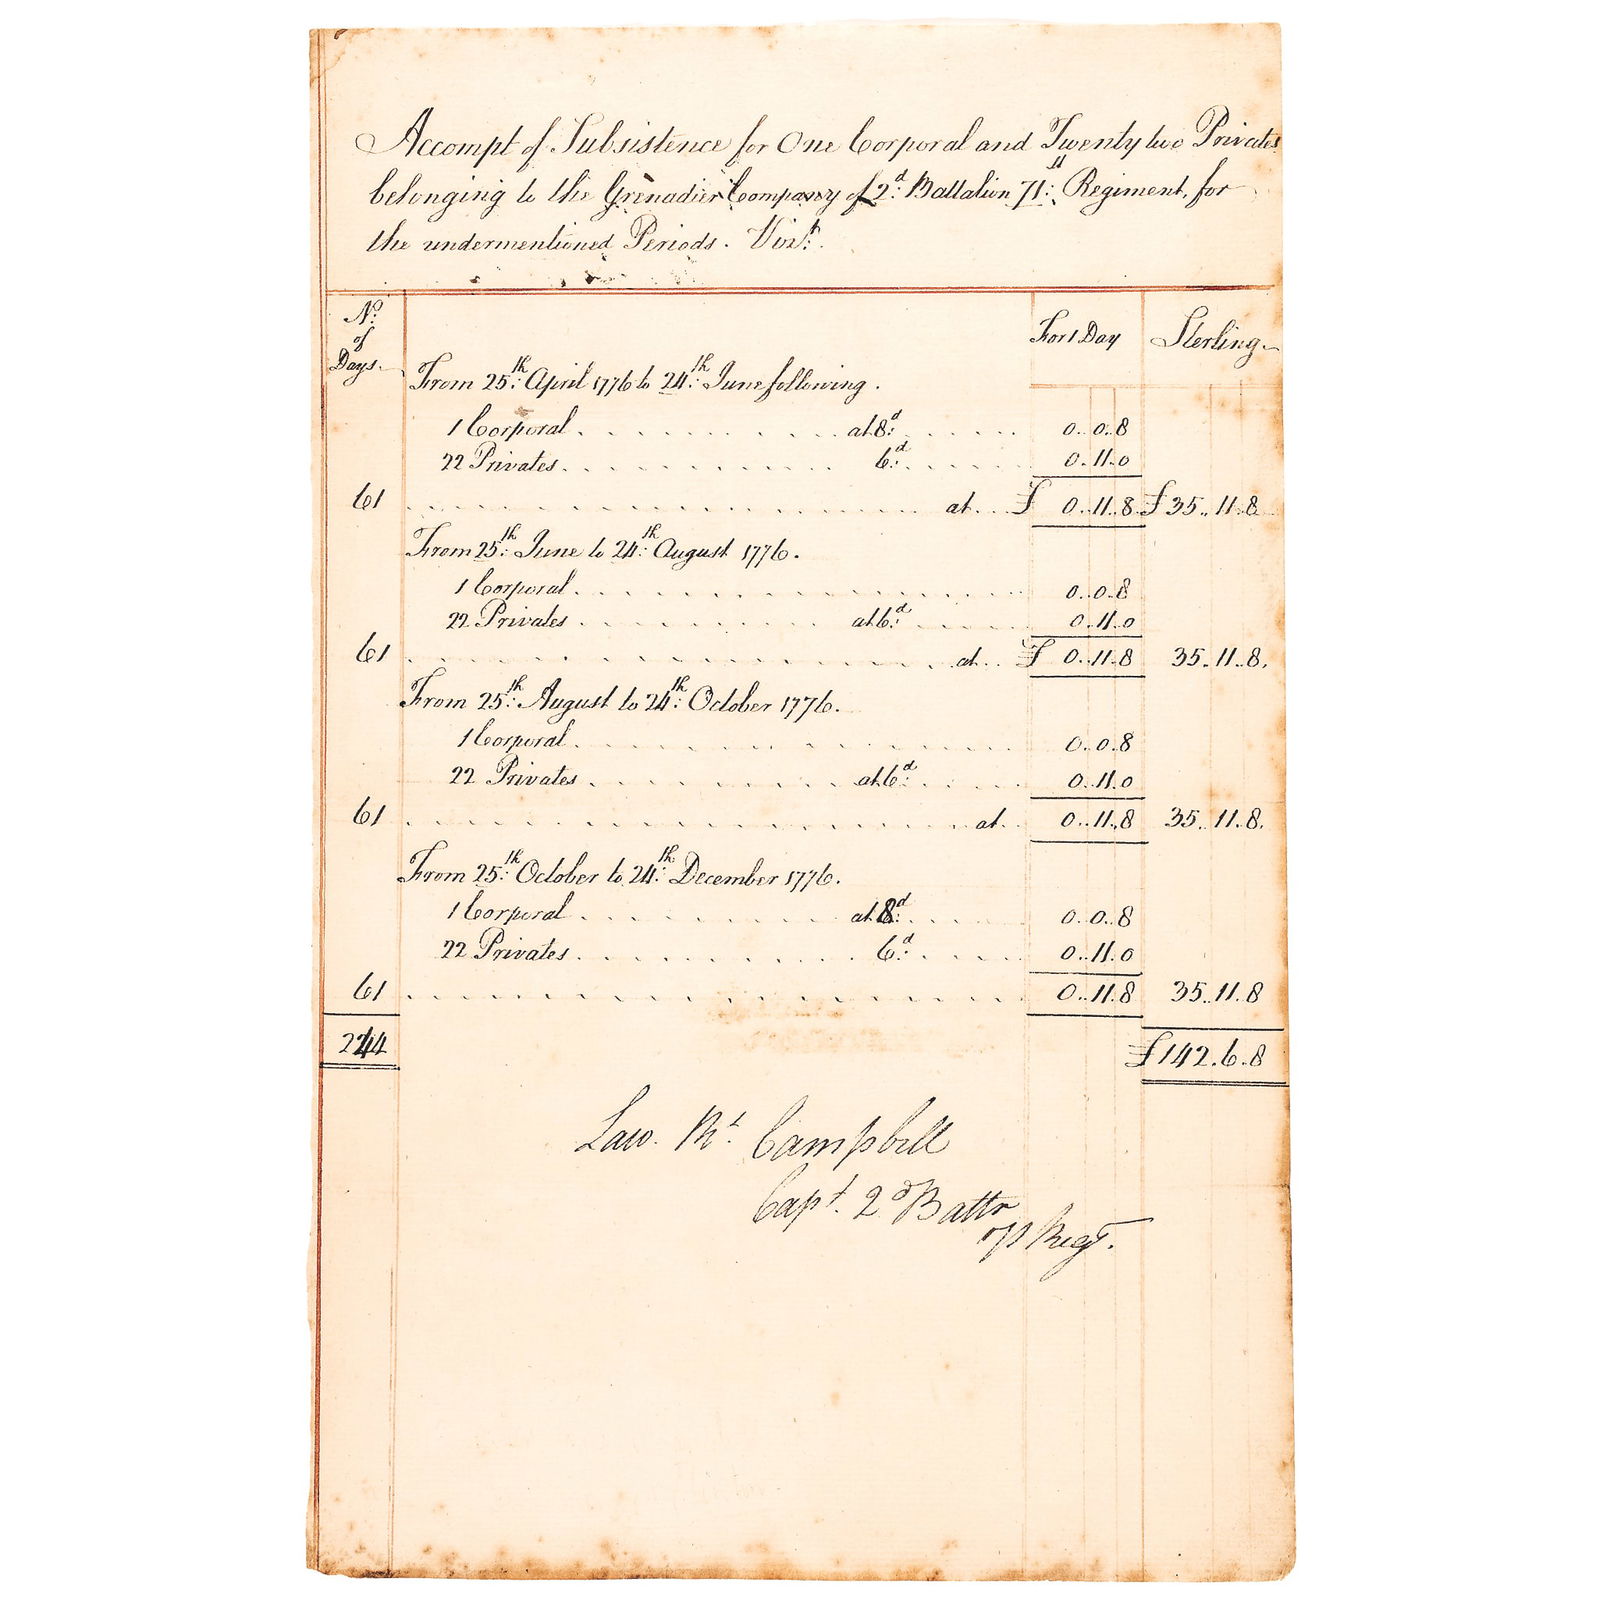 Accompt of Subsistence for One Corporal and Twenty two Privates
belonging to the Grenadier Company of 2d. Battalion 71st. Regiment, for
the undermentioned Periods. Vizt.
No. of Days. For 1 Day Sterling
From 25th. April 1776 to 24th. June following.
1 Corporal at 8d. 0..0..8
22 Privates 6d. 0..11..0
61 at £ 0..11..8 £35..11..8
From 25th. June to 24th. August 1776.
1 Corporal 0..0..8
22 Privates at 6d. 0..11..0
61 at £ 0..11..8 35..11..8.
From 25th. August to 24th. October 1776.
1 Corporal 0..0..8
22 Privates at 6d. 0..11..0
61 at 0..11..8 35..11..8.
From 25th. October to 24th. December 1776.
1 Corporal at 8d. 0..0..8
22 Privates 6d. 0..11..0
61 0..11..8 35..11..8
244 £142..6..8
Law. Rt. Campbell
Capt. 2d Battn
71 Regt.